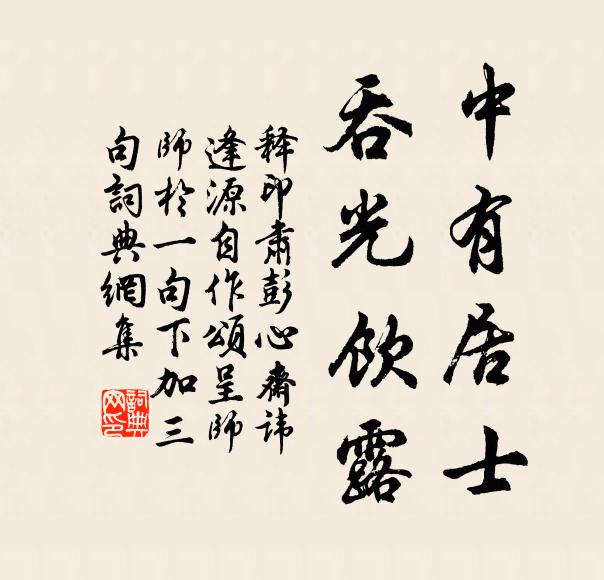 中有居士
吞光飲露
释印肅彭心齋諱
逢源自作頌呈師
師於一句下加三
句詞典網集
詞典網印